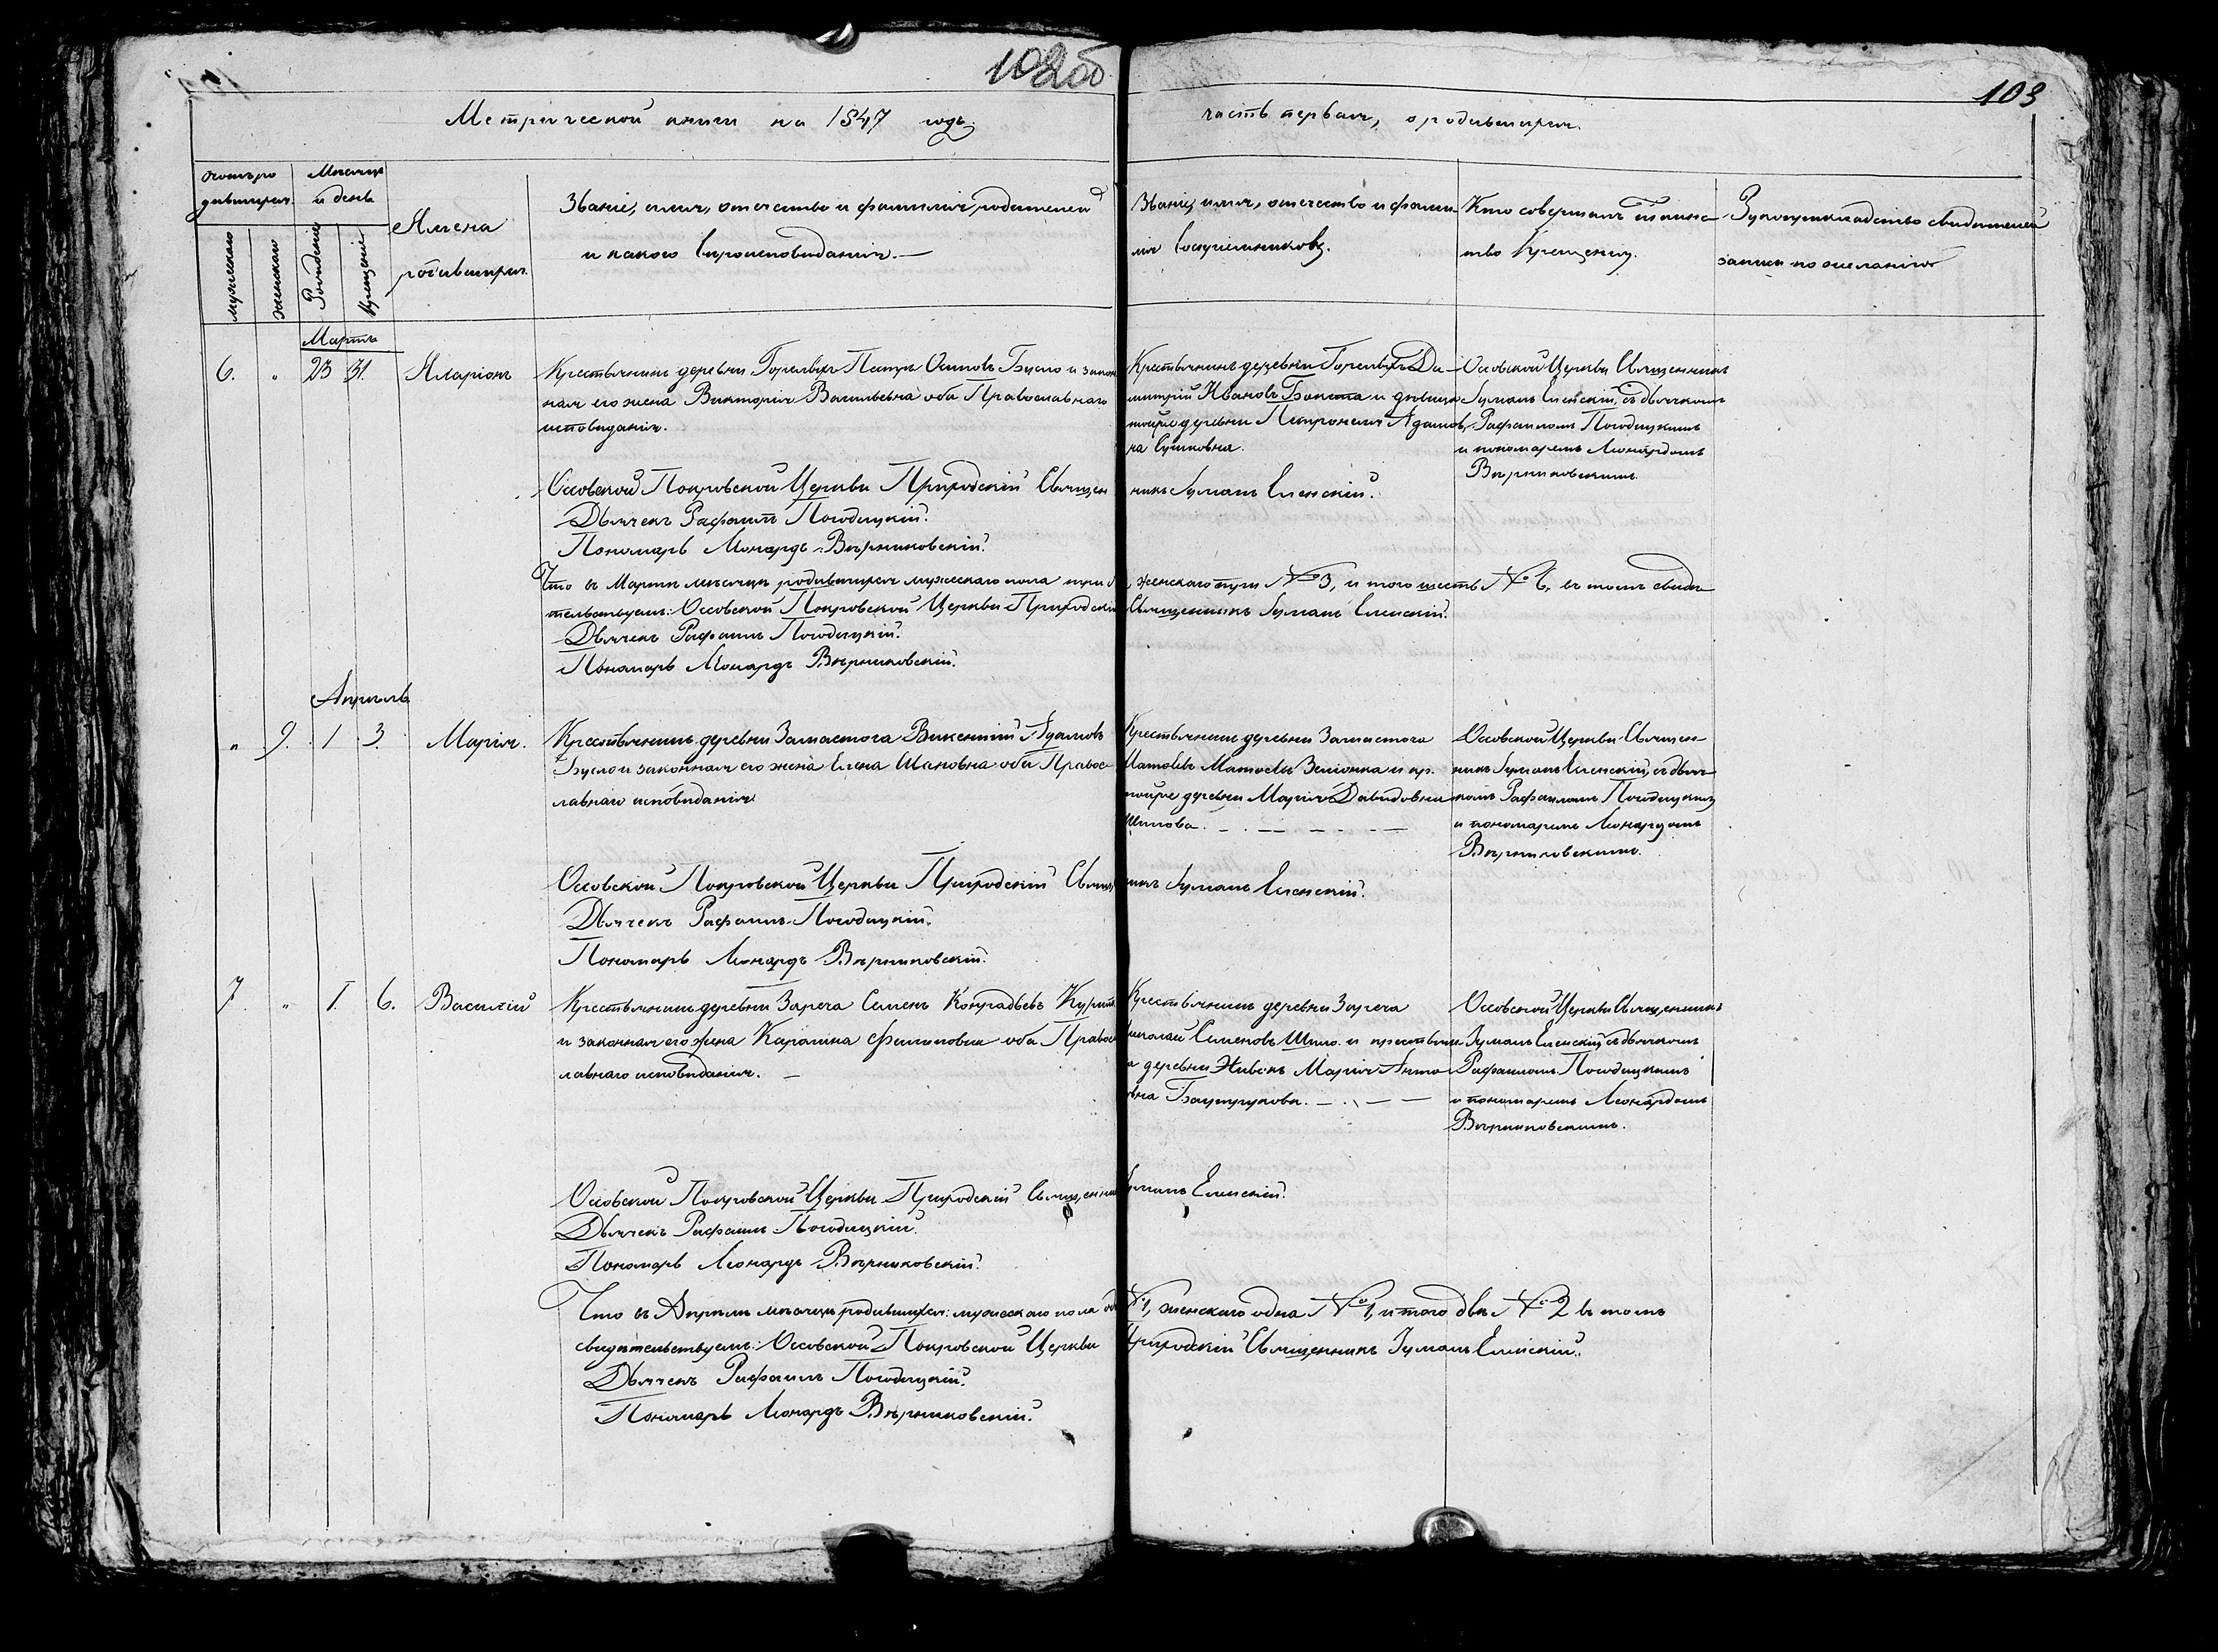 102об
103
Метрической книги на 1847 годъ.
часть первая, о родившихся.
Счетъ ро
дившихся.
Мѣсяцъ
и день
мужескаго
женскаго
Рожденія
крещенія
Имена
родившихся.
Званіе, имя, отечество и фамилія родителей
и какого вѣроисповѣданія. —
Званіе, имя, отечество и фами-
лія воспріемниковъ.
Кто совершалъ таинс-
тво крещенія.
Рукоприкладство свидетелей
записи по желанію
Мартъ
6. " 23 31. Иларіонъ
Крестьянинъ деревни Горелыхъ Петръ Осиповъ Бусло и закон
ная его жена Викторія Васильевна оба Православнаго
исповѣданія.
Крестьянинъ деревни Горелыхъ Ди-
митрій Ивановъ и девица
тойже деревни Петронеля Адамов
на
Осовской Церкви Священникъ
Еленскій, съ дьячкомъ
Рафаиломъ Погодицкимъ
и пономаремъ Леонардомъ
Вѣрниковскимъ.
Осовской Покровской Церкви Приходскій Священ
никъ Еленскій.
Дьячекъ Рафаилъ Погодицкій.
Пономарь Леонардъ Вѣрниковскій.
Что въ Мартѣ мѣсяцѣ родившихся мужескаго пола три
женскаго три №3, и того шесть № 6, въ томъ свидѣ-
тельствуемъ: Осовской Покровской Церкви Приходскій
Священникъ Еленскій.
Дьячекъ Рафаилъ Погодицкій.
Пономарь Леонардъ Вѣрниковскій.
Апрѣль
" 9. 1 3. Марія.
Крестьянинъ деревни Замостога Викентій Адамовъ
Бусло и законная его жена Елена Ивановна оба Правос-
лавнаго исповѣданія
Крестьянинъ деревни Замостога
Матвѣевъ Зелонка и кр.
тойже деревни Марія Давидовна
Шилова. — . — . —
Осовской Церкви Священ-
никъ Еленскій, съ дьяч-
комъ Рафаиломъ Погодицкимъ
и пономаремъ Леонардомъ
Вѣрниковскимъ.
Осовской Покровской Церкви Приходскій Свящ
никъ Еленскій.
Дьячекъ Рафаилъ Погодицкій.
Пономарь Леонардъ Вѣрниковскій.
7 " 1. 6. Василій
Крестьянинъ деревни Зареча Семенъ Кондратьевъ
и законная его жена Каролина Филиповна оба Правос
лавнаго исповѣданія. —
Крестьянинъ деревни Зареча
Николай Семеновъ Шило и крестьянк
а деревни Марія Анто
вна
Осовской Церкви Священникъ
Еленскій, съ дьячкомъ
Рафаиломъ Погодицкимъ
и пономаремъ Леонардомъ
Вѣрниковскимъ.
Осовской Покровской Церкви Приходскій Священник
Еленскій.
Дьячекъ Рафаилъ Погодицкій.
Пономарь Леонардъ Вѣрниковскій.
Что въ Апрѣлѣ мѣсяцѣ родившихся: мужескаго пола
№1, женскаго одна №1, и того двѣ № 2 въ томъ
свидѣтельствуемъ: Осовской Покровской Церкви
Приходскій Священникъ Еленскій.
Дьячекъ Рафаилъ Погодицкій.
Пономарь Леонардъ Вѣрниковскій.